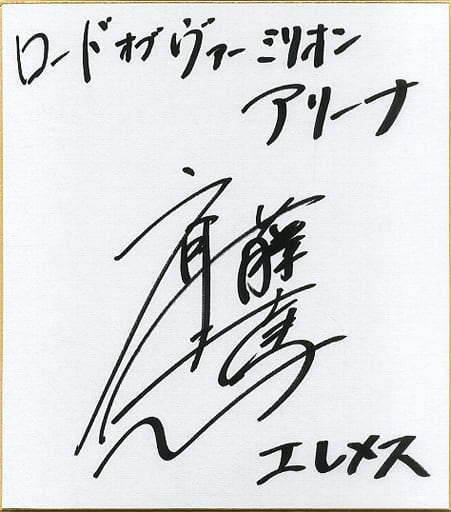 ロード オブ ヴァーミリオン
アリーナ
斉藤
エレメス